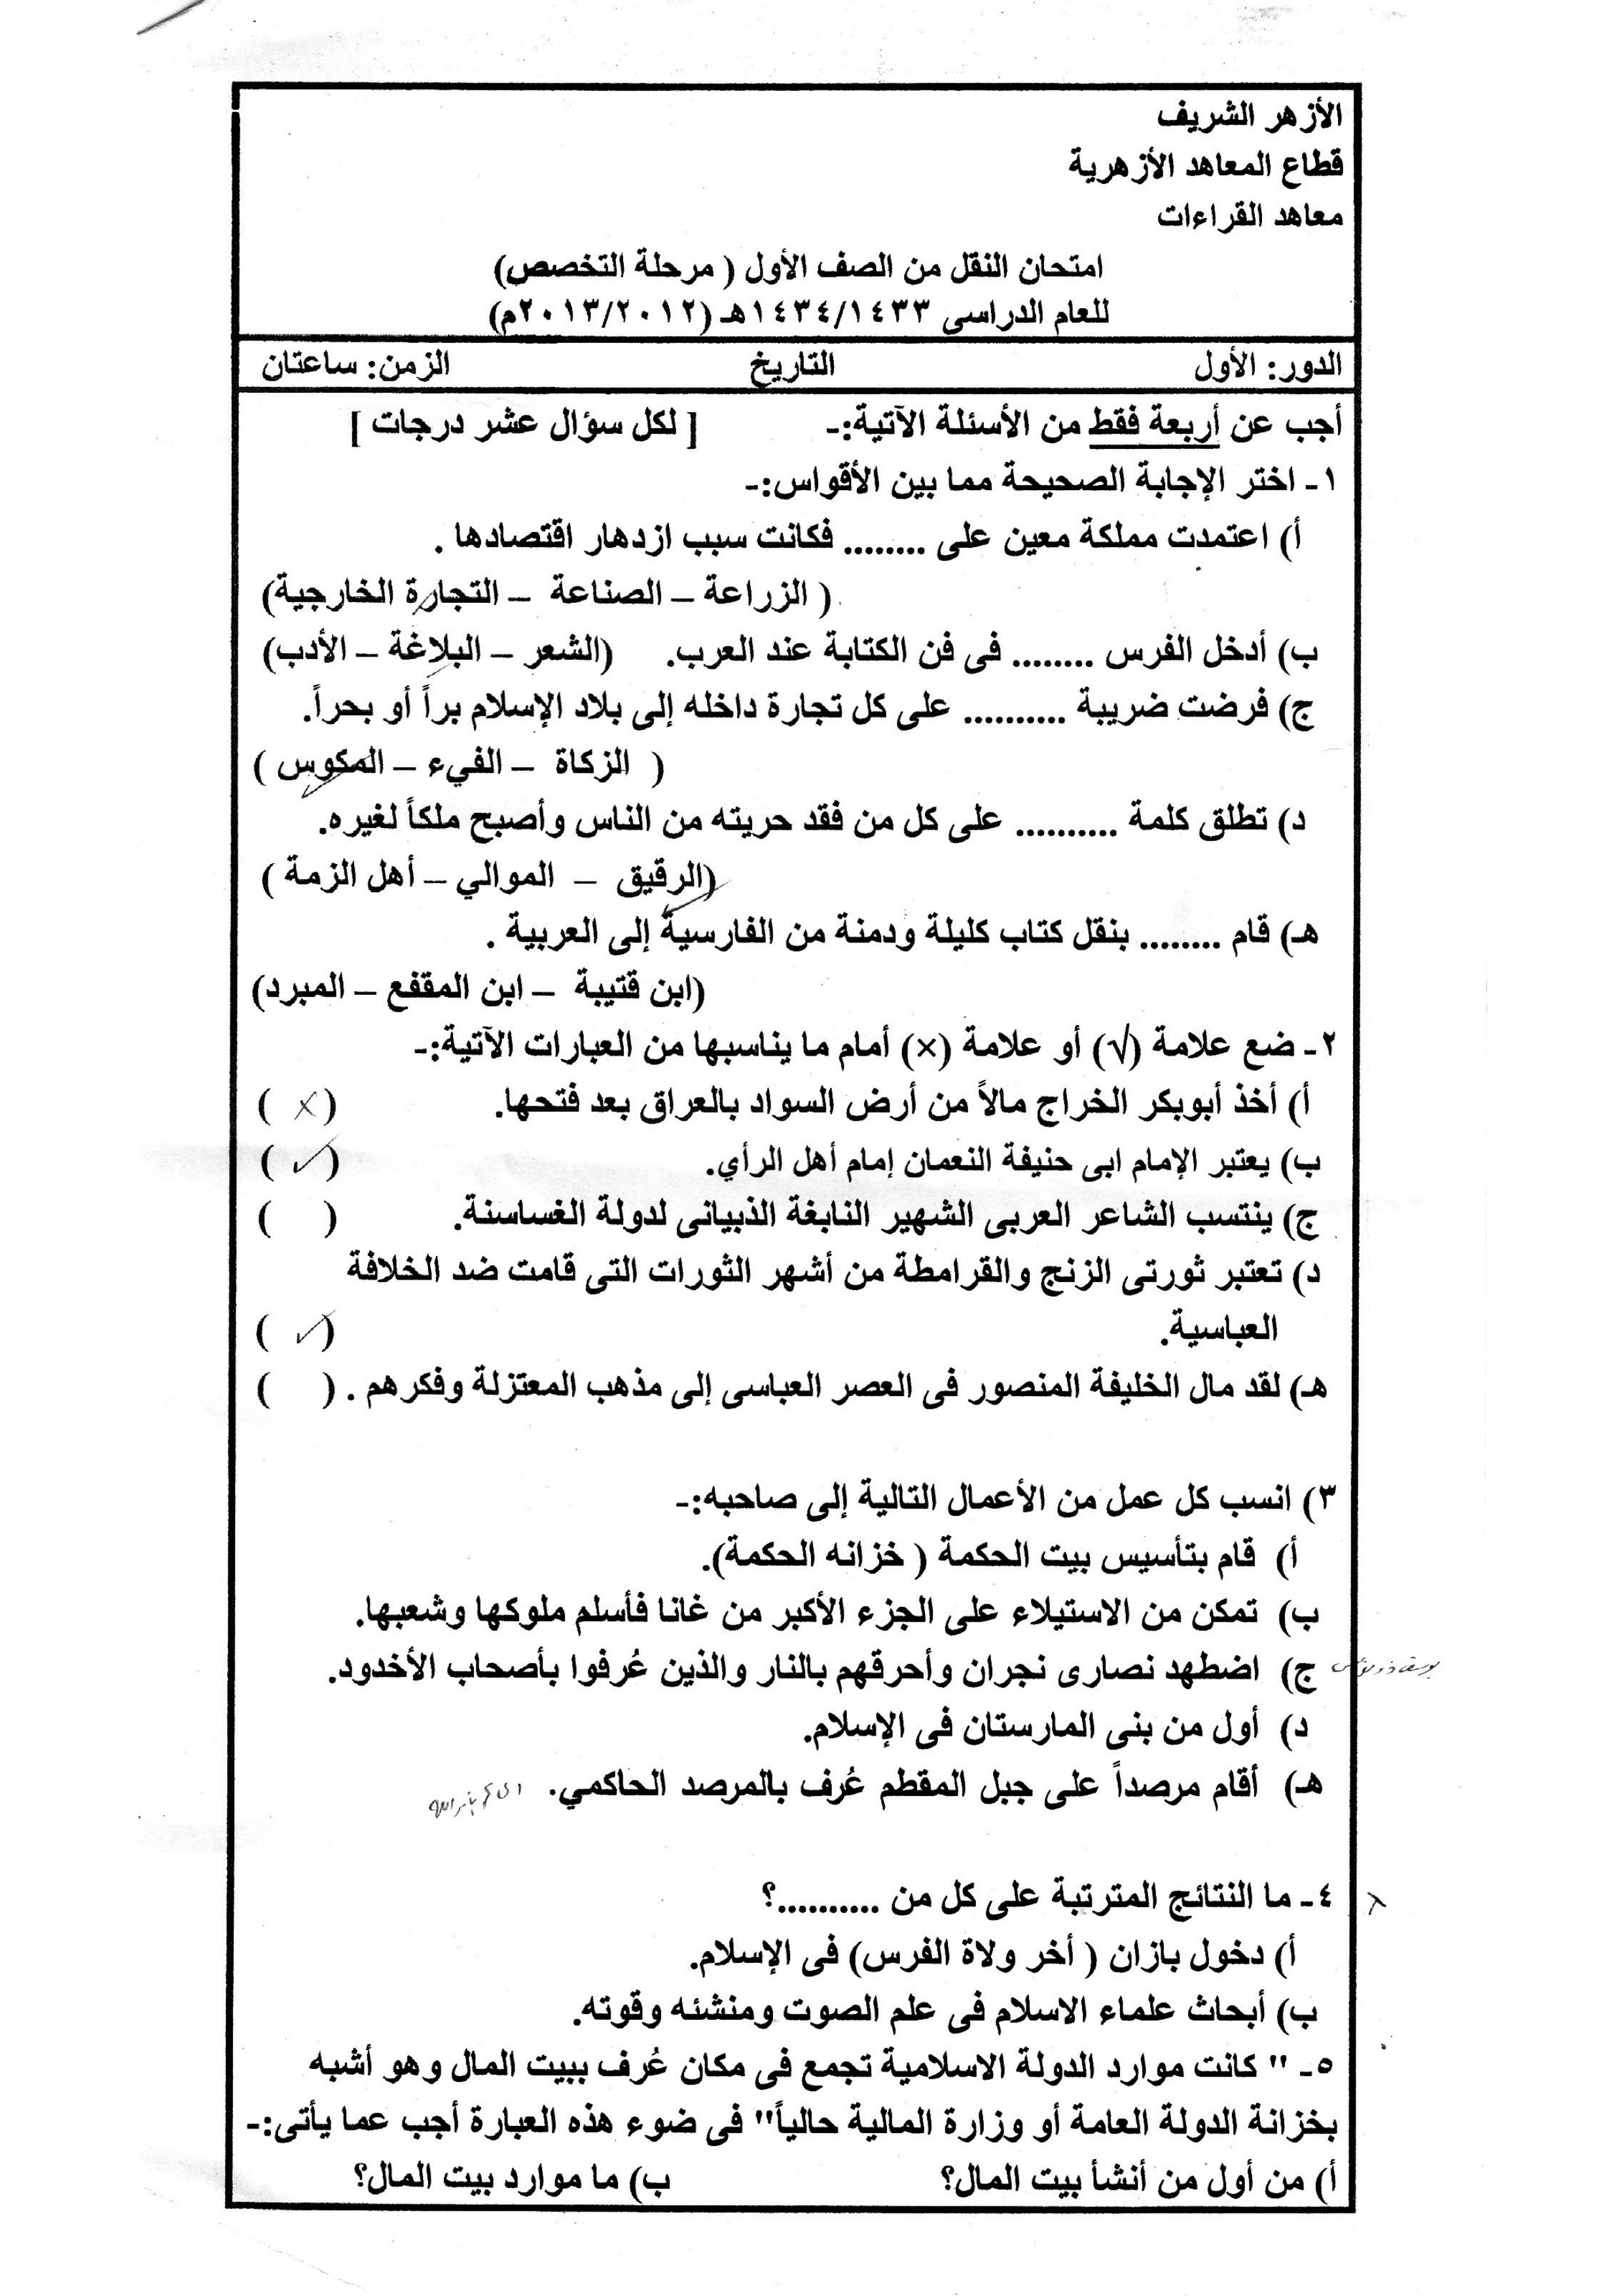 الأزهر الشريف
قطاع المعاهد الأزهرية
معاهد القراءات
امتحان النقل من الصف الأول ( مرحلة التخصص)
للعام الدراسى ١٤٣٤/١٤٣٣هـ (٢٠١٣/٢٠١٢م)
الدور: الأول التاريخ الزمن: ساعتان
أجب عن أربعة فقط من الأسئلة الآتية:- [ لكل سؤال عشر درجات ]
١- اختر الإجابة الصحيحة مما بين الأقواس:-
أ) اعتمدت مملكة معين على ........ فكانت سبب ازدهار اقتصادها .
( الزراعة – الصناعة – التجارة الخارجية)
ب) أدخل الفرس ........ فى فن الكتابة عند العرب. (الشعر – البلاغة – الأدب)
ج) فرضت ضريبة .......... على كل تجارة داخله إلى بلاد الإسلام براً أو بحراً.
( الزكاة – الفيء – المكوس )
د) تطلق كلمة .......... على كل من فقد حريته من الناس وأصبح ملكاً لغيره.
(الرقيق – الموالي – أهل الزمة )
هـ) قام ........ بنقل كتاب كليلة ودمنة من الفارسية إلى العربية .
(ابن قتيبة – ابن المقفع – المبرد)
٢- ضع علامة (√) أو علامة (×) أمام ما يناسبها من العبارات الآتية:-
أ) أخذ أبوبكر الخراج مالاً من أرض السواد بالعراق بعد فتحها. ( × )
ب) يعتبر الإمام ابى حنيفة النعمان إمام أهل الرأي. ( ✓ )
ج) ينتسب الشاعر العربى الشهير النابغة الذبيانى لدولة الغساسنة. ( )
د) تعتبر ثورتى الزنج والقرامطة من أشهر الثورات التى قامت ضد الخلافة
العباسية. ( ✓ )
هـ) لقد مال الخليفة المنصور فى العصر العباسى إلى مذهب المعتزلة وفكرهم . ( )
٣) انسب كل عمل من الأعمال التالية إلى صاحبه:-
أ) قام بتأسيس بيت الحكمة ( خزانه الحكمة).
ب) تمكن من الاستيلاء على الجزء الأكبر من غانا فأسلم ملوكها وشعبها.
يوسف ذو نواس ج) اضطهد نصارى نجران وأحرقهم بالنار والذين عُرفوا بأصحاب الأخدود.
د) أول من بنى المارستان فى الإسلام.
هـ) أقام مرصداً على جبل المقطم عُرف بالمرصد الحاكمي. الحاكم بأمر الله
٤- ما النتائج المترتبة على كل من ..........؟
أ) دخول بازان ( أخر ولاة الفرس) فى الإسلام.
ب) أبحاث علماء الاسلام فى علم الصوت ومنشئه وقوته.
٥- " كانت موارد الدولة الاسلامية تجمع فى مكان عُرف ببيت المال وهو أشبه
بخزانة الدولة العامة أو وزارة المالية حالياً" فى ضوء هذه العبارة أجب عما يأتى:-
أ) من أول من أنشأ بيت المال؟ ب) ما موارد بيت المال؟